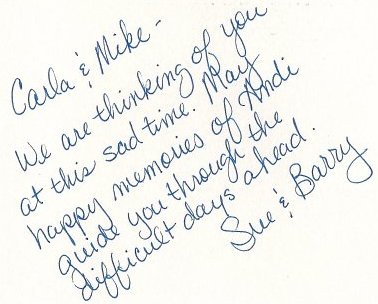 Carla & Mike -
We are thinking of you
at this sad time. May
happy memories of Andi
guide you through the
difficult days ahead.
Sue & Barry